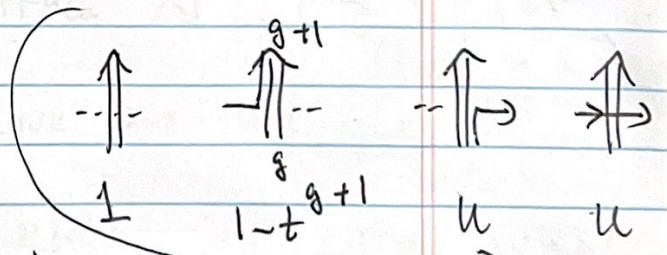 g+1
g
1 1-t^{g+1} u u